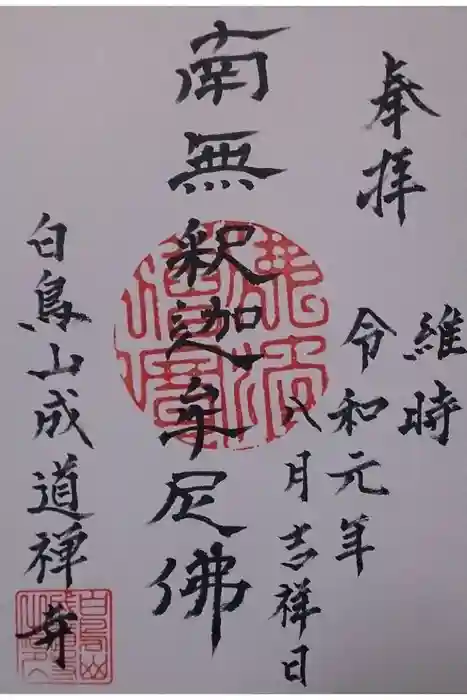 奉拝
維時
令和元年
八月吉祥日
南無釈迦牟尼佛
白鳥山成道禅寺
佛法僧寶